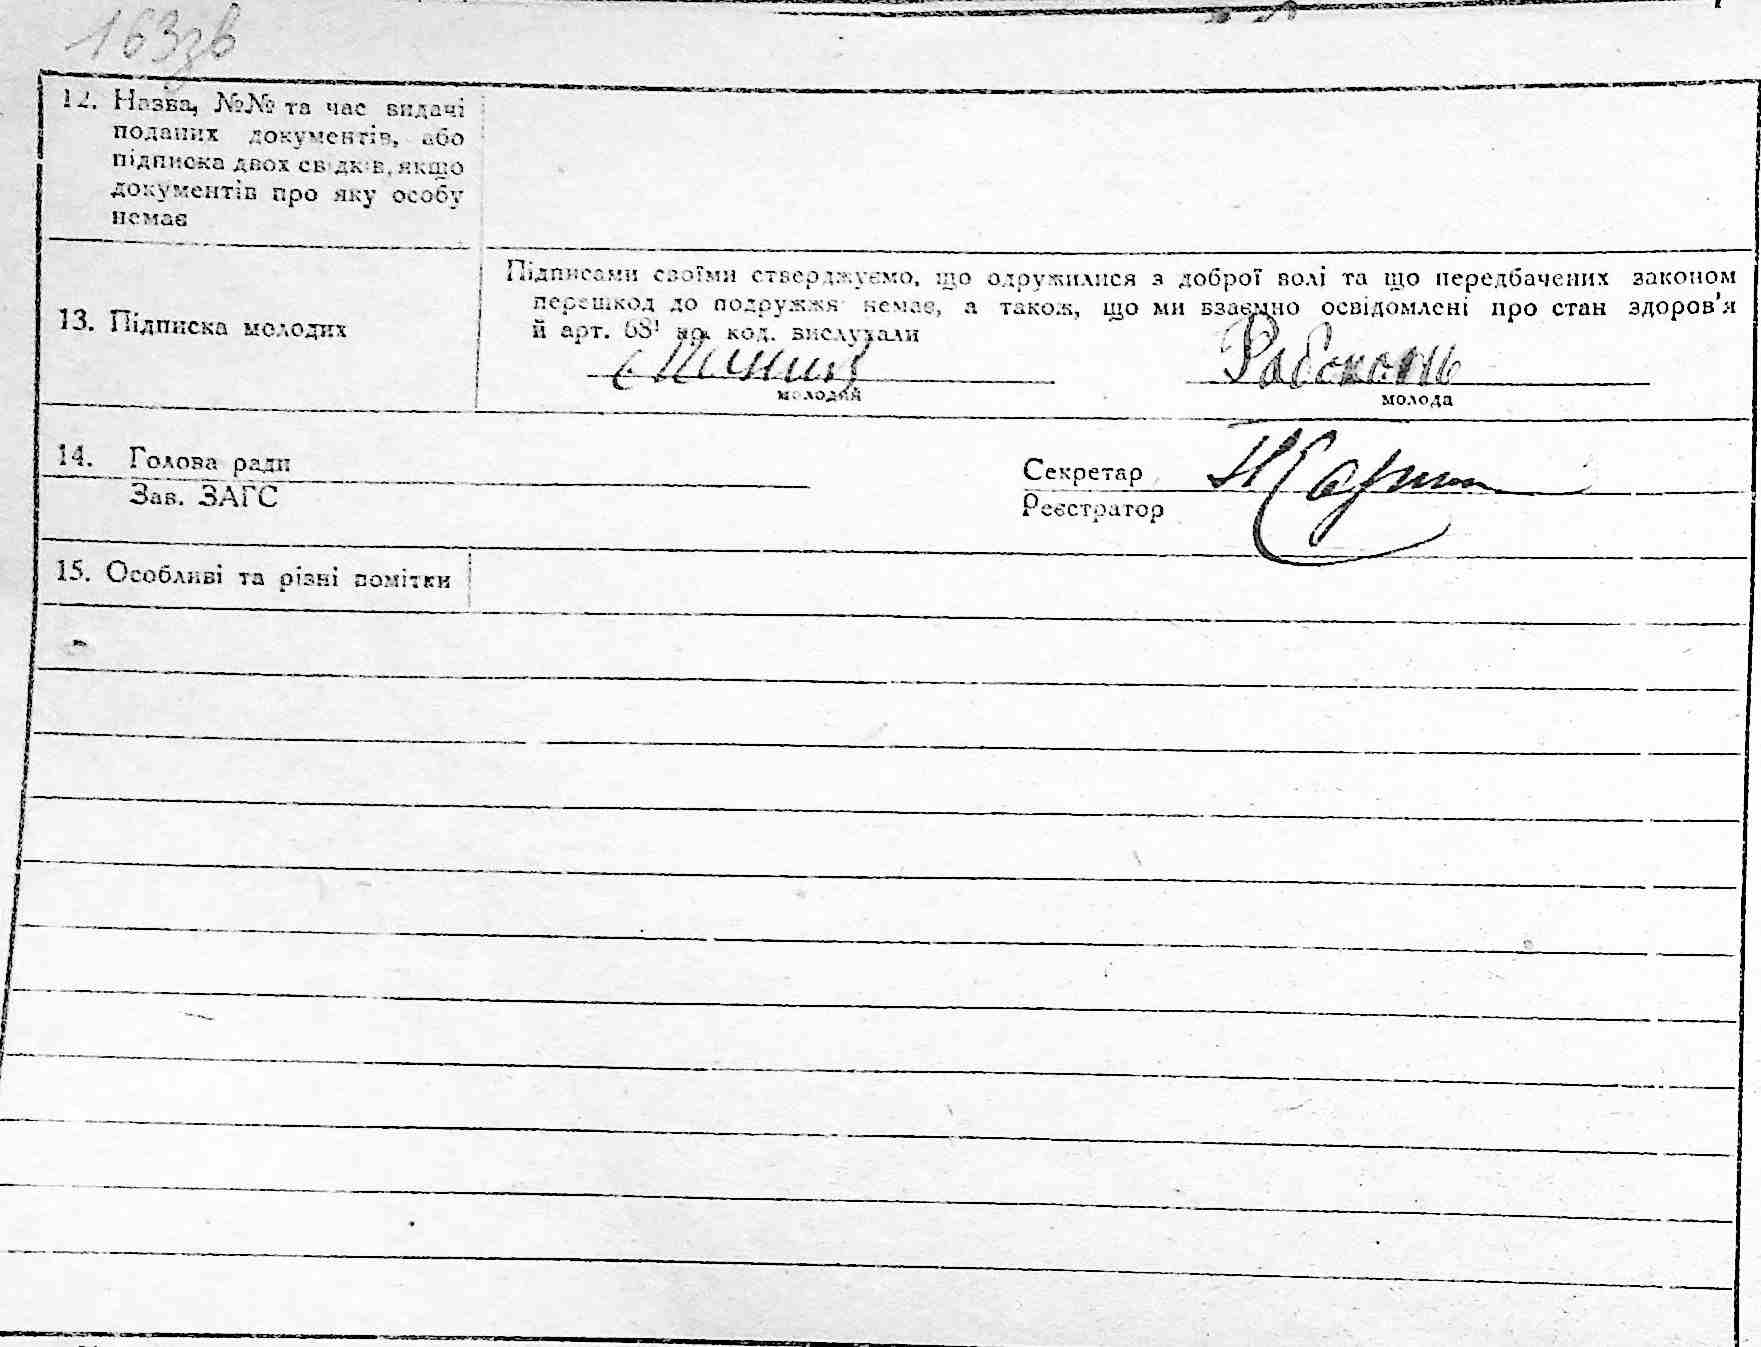 163зв
12. Назва, №№ та час видачі
поданих документів, або
підписка двох свідків, якщо
документів про яку особу
немає
13. Підписка молодих
Підписами своїми стверджуємо, що одружилися з доброї волі та що передбачених законом
перешкод до подружжя немає, а також, що ми взаємно освідомлені про стан здоров'я
й арт. 68¹ кр. код. вислухали
молодий
молода
14. Голова ради
Зав. ЗАГС
Секретар
Реєстратор
15. Особливі та різні помітки